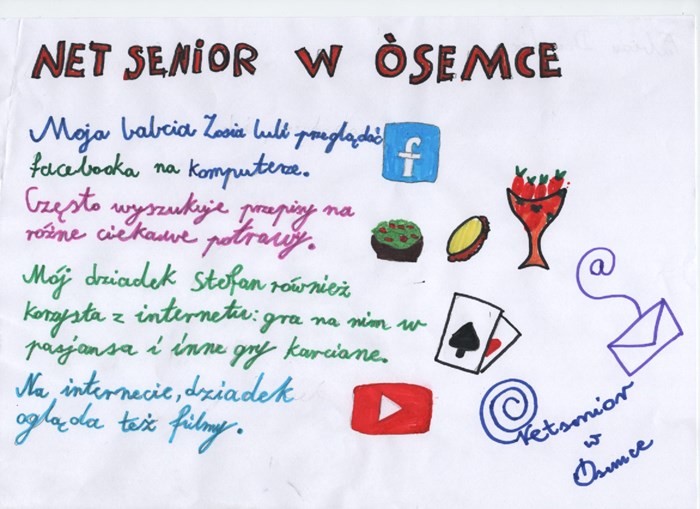 NET SENIOR W ÒSEMCE
Moja babcia Zosia lubi przeglądać
facebooka na komputerze.
Często wyszukuje przepisy na
różne ciekawe potrawy.
Mój dziadek Stefan również
korzysta z internetu: gra na nim w
pasjansa i inne gry karciane.
Na internecie, dziadek
ogląda też filmy.
f
@
Netsenior
w
Ósemce